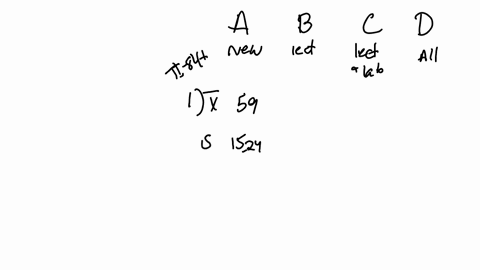 A B C D
new lect lect All
& lab
TI-84+
1) x̅ 59
S 15.24